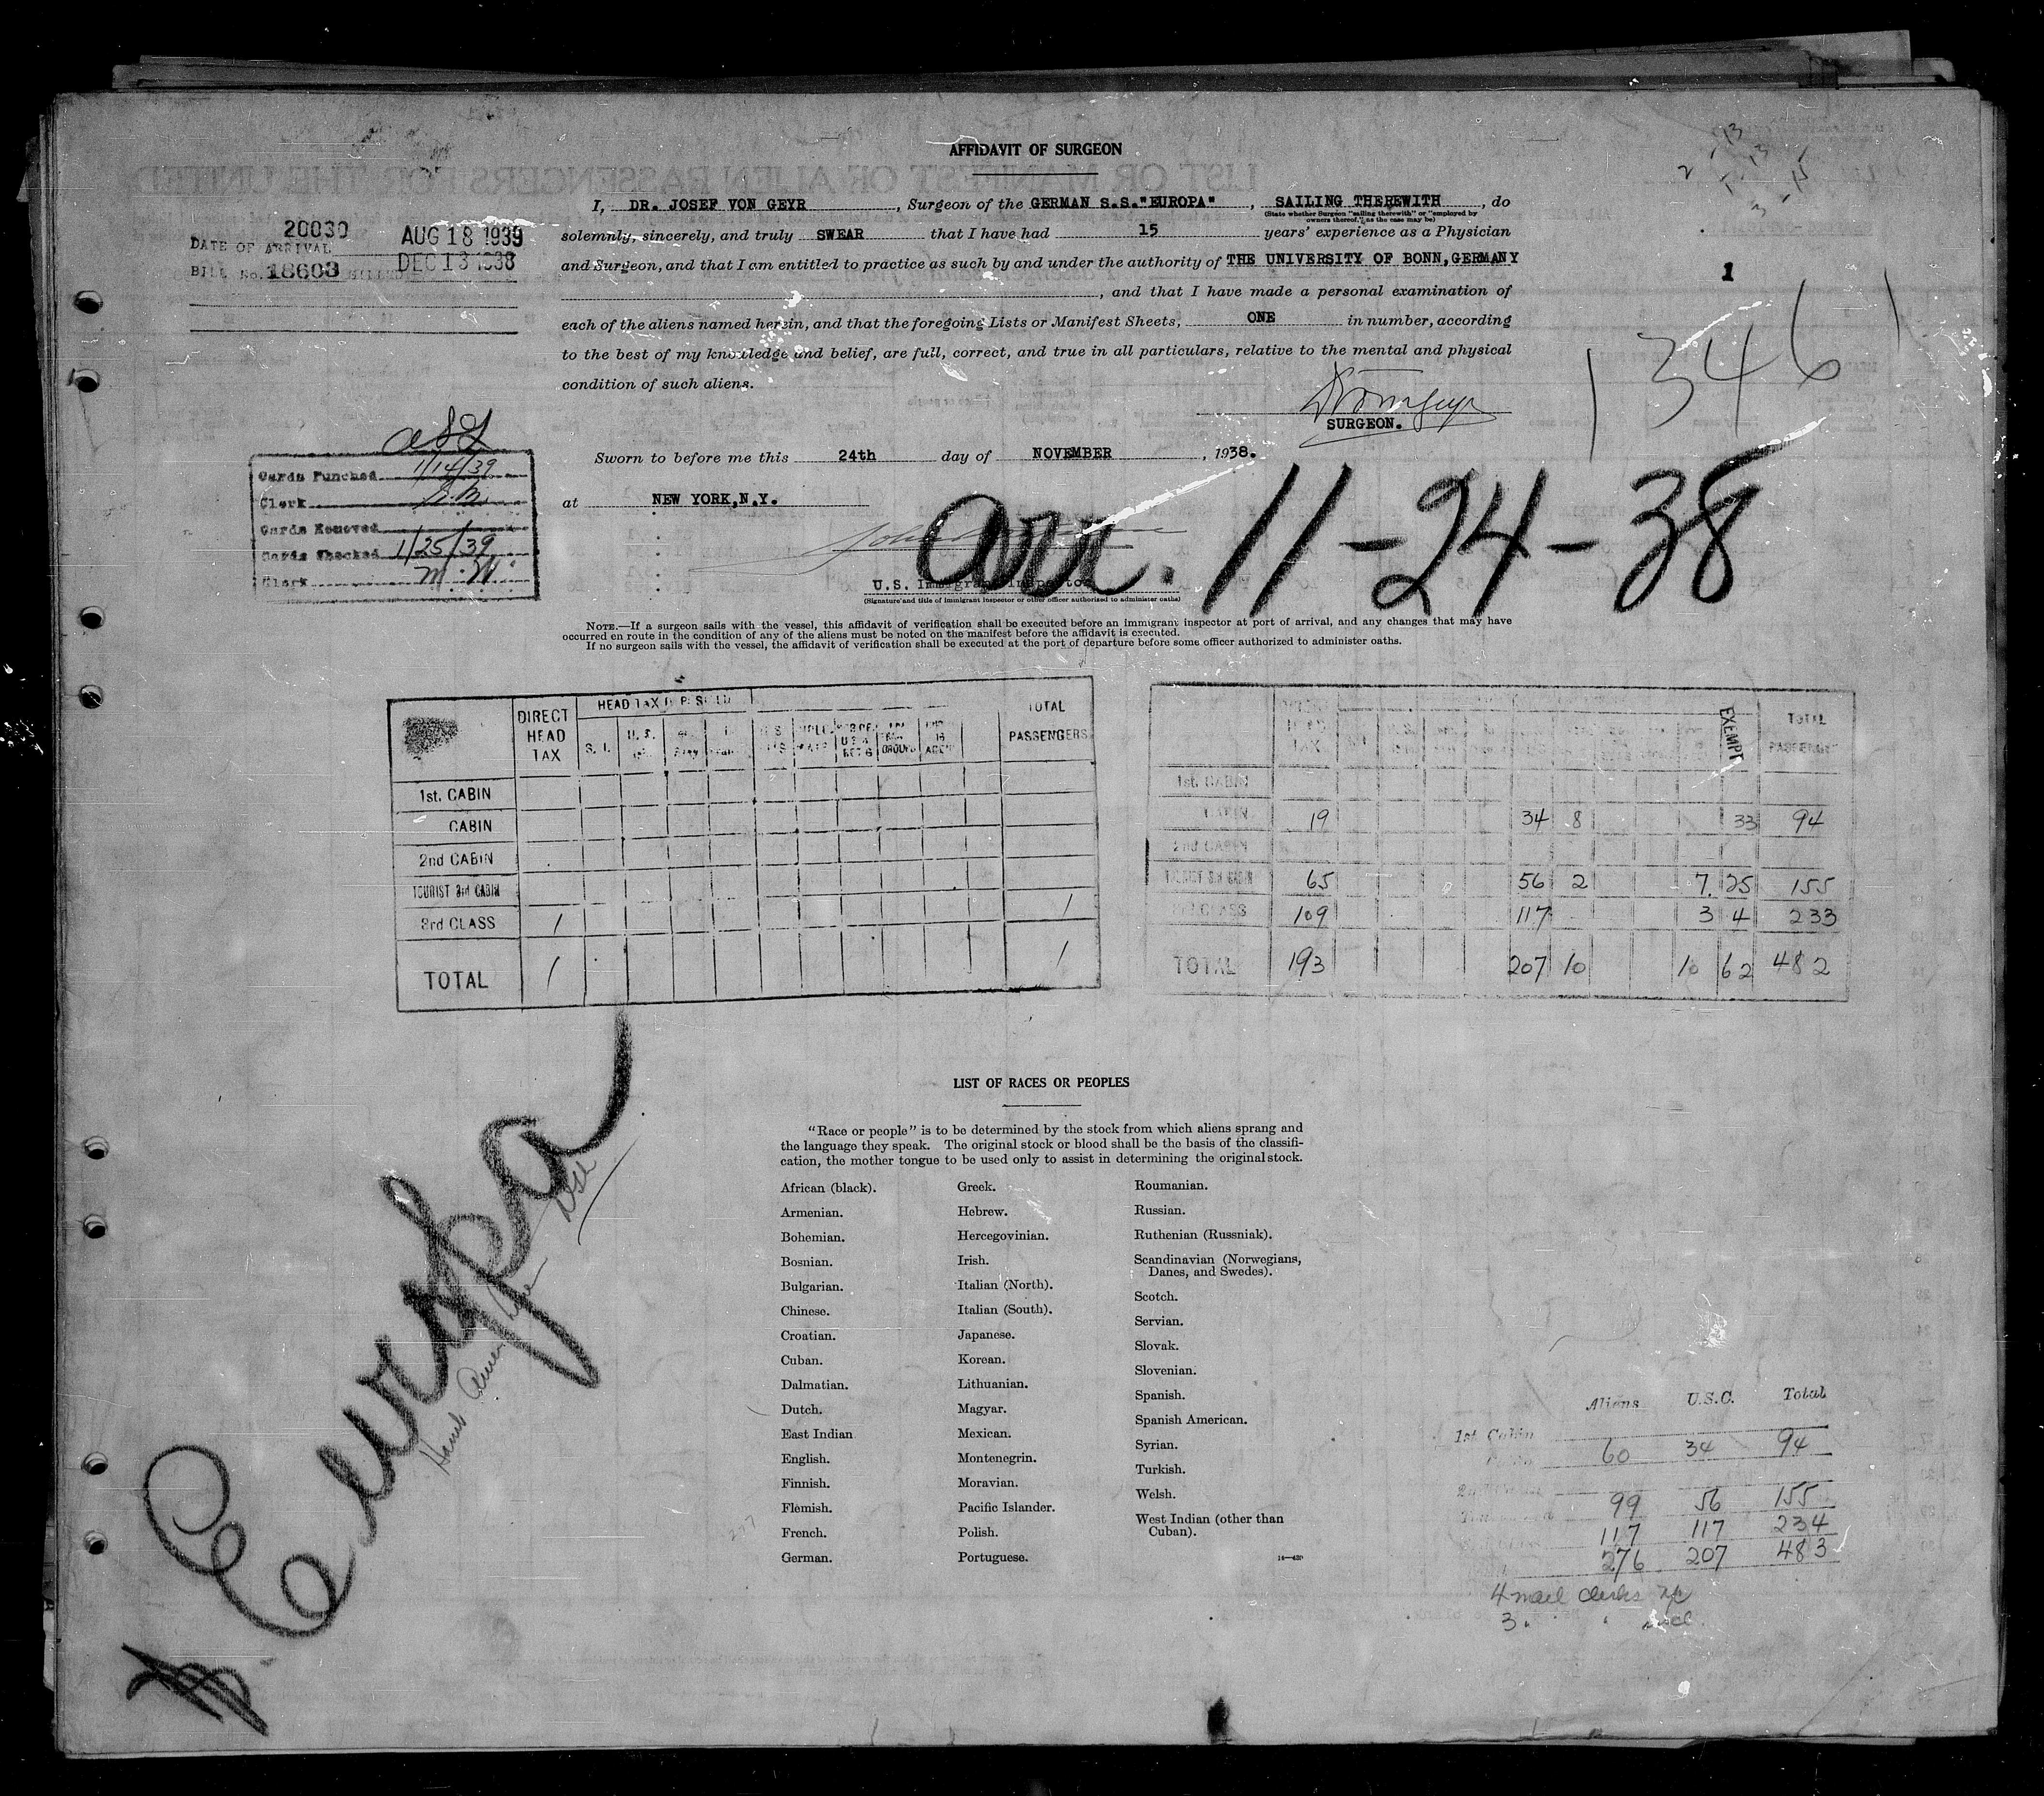 AFFIDAVIT OF SURGEON
I, DR. JOSEF VON GEYR, Surgeon of the GERMAN S.S."EUROPA", SAILING THEREWITH, do
(State whether Surgeon "sailing therewith" or "employed by
owners thereof," as the case may be)
solemnly, sincerely, and truly SWEAR that I have had 15 years' experience as a Physician
and Surgeon, and that I am entitled to practice as such by and under the authority of THE UNIVERSITY OF BONN, GERMANY
, and that I have made a personal examination of
each of the aliens named herein, and that the foregoing Lists or Manifest Sheets, ONE in number, according
to the best of my knowledge and belief, are full, correct, and true in all particulars, relative to the mental and physical
condition of such aliens.
SURGEON.
Sworn to before me this 24th day of NOVEMBER, 1938.
at NEW YORK, N.Y.
U.S. Immigrant Inspector
(Signature and title of immigrant inspector or other officer authorized to administer oaths)
20030
DATE OF ARRIVAL AUG 18 1939
BILL No. 18603 BILLED DEC 13 1938
1
1346
Cards Punched 1/14/39
Clerk
Cards Removed
Cards Checked 1/25/39
Clerk M.W.
arr. 11-24-38
NOTE.—If a surgeon sails with the vessel, this affidavit of verification shall be executed before an immigrant inspector at port of arrival, and any changes that may have
occurred en route in the condition of any of the aliens must be noted on the manifest before the affidavit is executed.
If no surgeon sails with the vessel, the affidavit of verification shall be executed at the port of departure before some officer authorized to administer oaths.
DIRECT HEAD TAX
HEAD TAX
S. I.
U. S.
TOTAL PASSENGERS
1st. CABIN
CABIN
2nd CABIN
TOURIST 3rd CABIN
3rd CLASS 1 1
TOTAL 1 1
HEAD TAX EXEMPT TOTAL PASSENGERS
1st. CABIN
CABIN 19 34 8 33 94
2nd CABIN
TOURIST 3rd CABIN 65 56 2 7 25 155
CLASS 109 117 3 4 233
TOTAL 193 207 10 10 62 482
Europa
LIST OF RACES OR PEOPLES
"Race or people" is to be determined by the stock from which aliens sprang and
the language they speak. The original stock or blood shall be the basis of the classifi-
cation, the mother tongue to be used only to assist in determining the original stock.
African (black).
Armenian.
Bohemian.
Bosnian.
Bulgarian.
Chinese.
Croatian.
Cuban.
Dalmatian.
Dutch.
East Indian
English.
Finnish.
Flemish.
French.
German.
Greek.
Hebrew.
Hercegovinian.
Irish.
Italian (North).
Italian (South).
Japanese.
Korean.
Lithuanian.
Magyar.
Mexican.
Montenegrin.
Moravian.
Pacific Islander.
Polish.
Portuguese.
Roumanian.
Russian.
Ruthenian (Russniak).
Scandinavian (Norwegians,
Danes, and Swedes).
Scotch.
Servian.
Slovak.
Slovenian.
Spanish.
Spanish American.
Syrian.
Turkish.
Welsh.
West Indian (other than
Cuban).
Aliens U.S.C. Total
1st Cabin
60 34 94
99 56 155
117 117 234
276 207 483
4 mail clerks
3